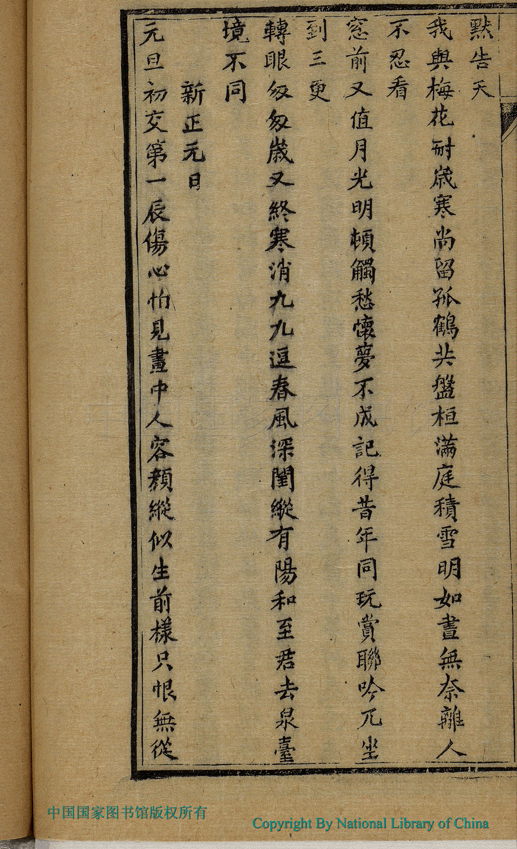 默告天
我與梅花耐歲寒尚留孤鶴共盤桓滿庭積雪明如晝無奈離人
不忍看
窓前又值月光明頓觸愁懷夢不成記得昔年同玩賞聯吟兀坐
到三更
轉眼匆匆歲又終寒消九九逗春風深閨縱有陽和至君去泉臺
境不同
新正元日
元旦初交第一辰傷心怕見畫中人容顏縱似生前樣只恨無從
中国国家图书馆版权所有
Copyright By National Library of China